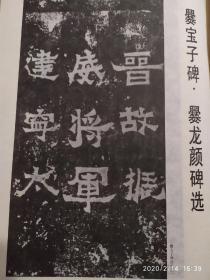 爨宝子碑·爨龙颜碑选
晋故振
威将军
建宁太
2020/2/14 15:39